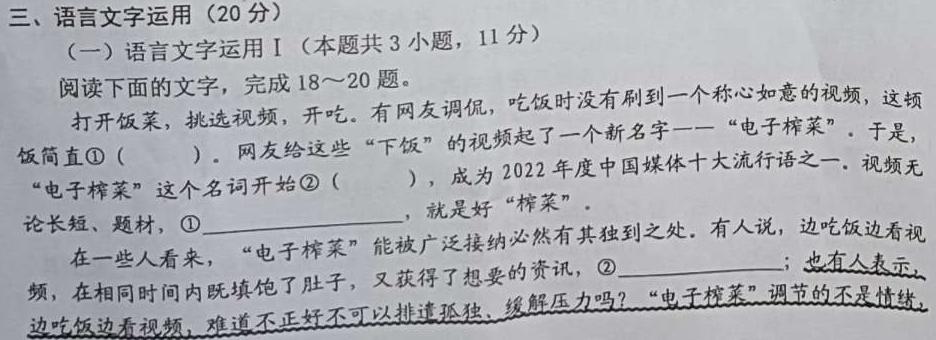 三、语言文字运用（20分）
（一）语言文字运用Ⅰ（本题共3小题，11分）
阅读下面的文字，完成18～20题。
打开饭菜，挑选视频，开吃。有网友调侃，吃饭时没有刷到一个称心如意的视频，这顿
饭简直①（　　）。网友给这些“下饭”的视频起了一个新名字——“电子榨菜”。于是，
“电子榨菜”这个名词开始②（　　），成为2022年度中国媒体十大流行语之一。视频无
论长短、题材，①＿＿＿＿＿＿＿＿，就是好“榨菜”。
在一些人看来，“电子榨菜”能被广泛接纳必然有其独到之处。有人说，边吃饭边看视
频，在相同时间内既填饱了肚子，又获得了想要的资讯，②＿＿＿＿＿＿＿＿；也有人表示，
边吃饭边看视频，难道不正好不可以排遣孤独、缓解压力吗？“电子榨菜”调节的不是情绪，